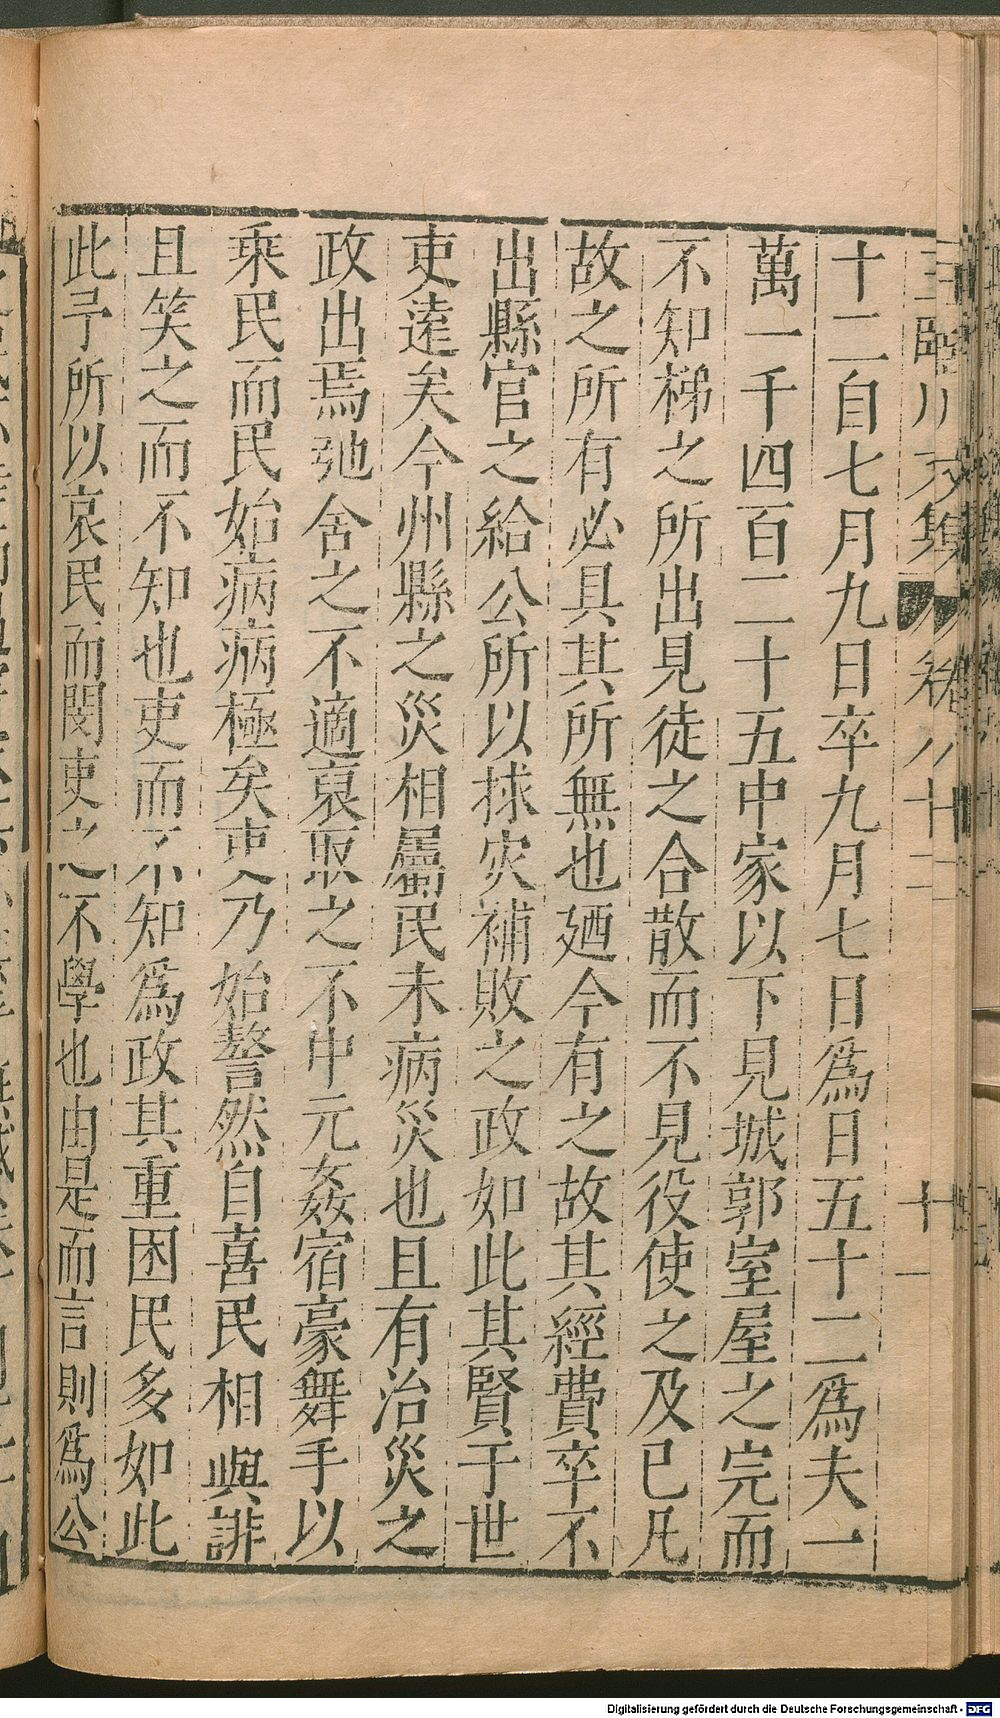 王臨川文集 卷八十二 十一
十二自七月九日卒九月七日爲日五十二爲夫一
萬一千四百二十五中家以下見城郭室屋之完而
不知梯之所出見徒之合散而不見役使之及已凡
故之所有必具其所無也廼今有之故其經費卒不
出縣官之給公所以捄灾補敗之政如此其賢于世
吏逺矣今州縣之災相屬民未病災也且有治災之
政出焉弛舍之不適裒取之不中元姦宿豪舞手以
乘民而民始病病極矣吏乃始謷然自喜民相與誹
且笑之而不知也吏而不知爲政其重困民多如此
此予所以哀民而閔吏之不學也由是而言則爲公
Digitalisierung gefördert durch die Deutsche Forschungsgemeinschaft - DFG